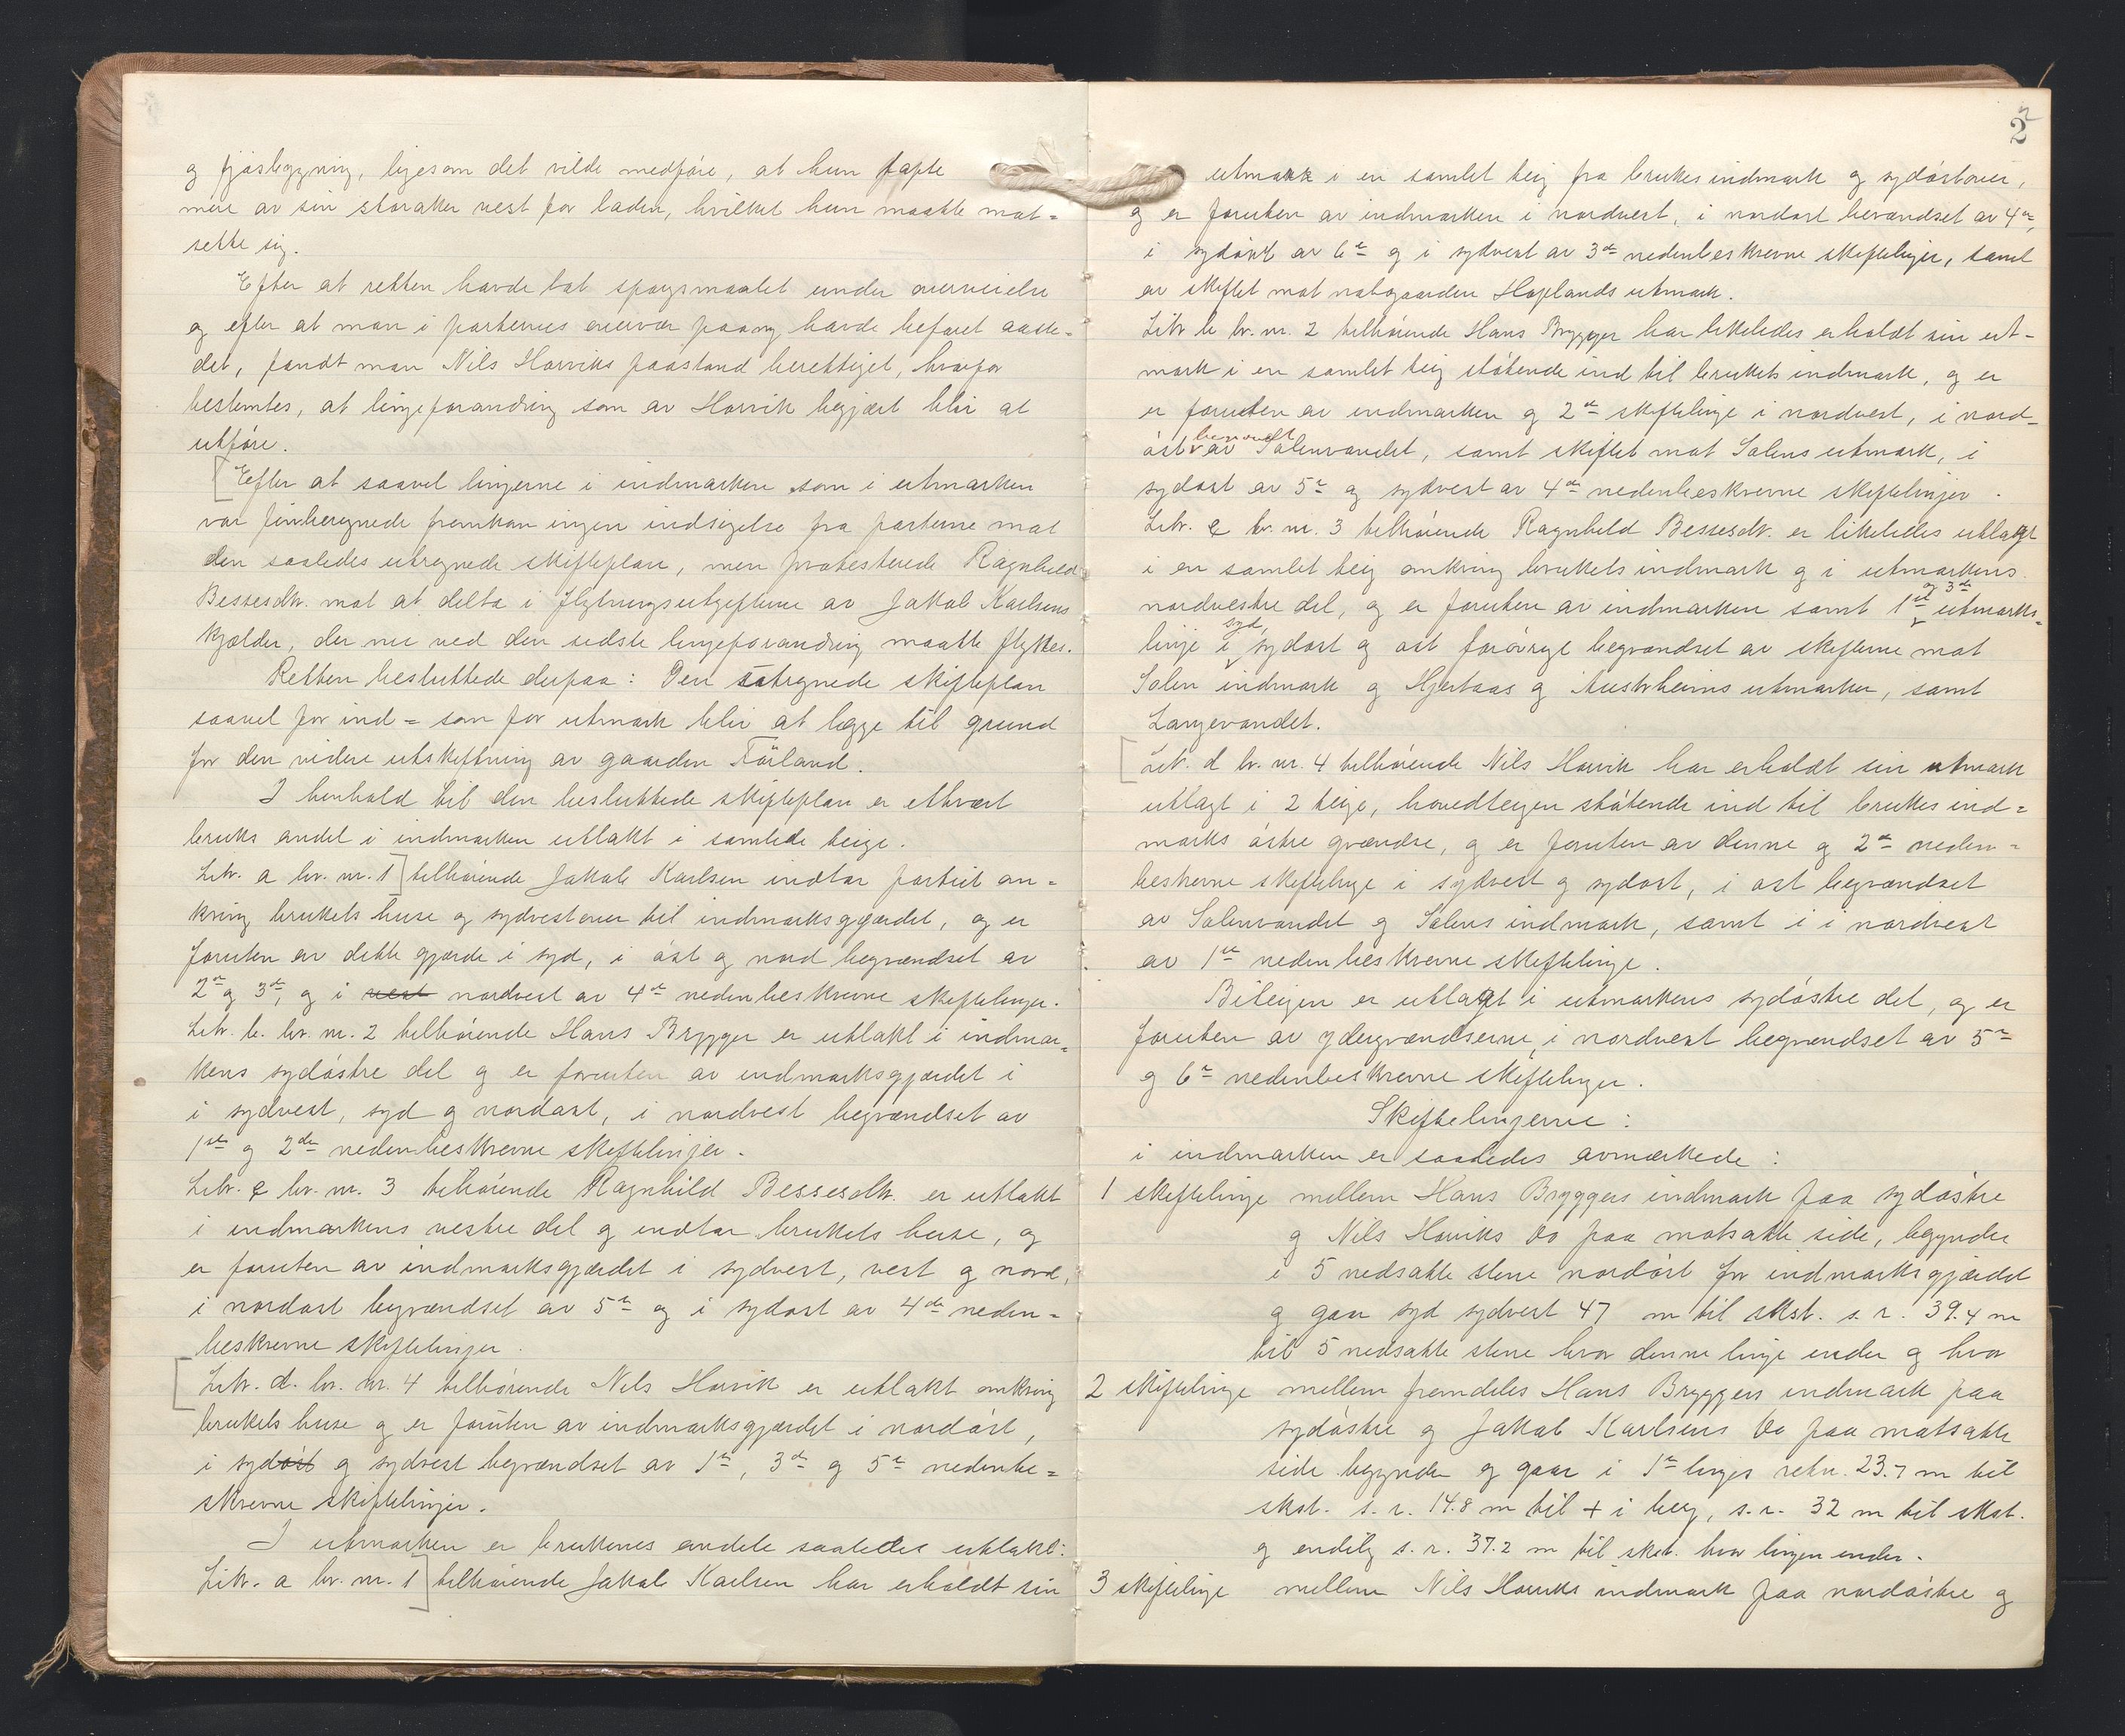 og fjøsbygning, ligesom det vilde medføre, at hun tapte
mere av sin storaker vest for laden, hvilket hun maatte mot=
sette sig.
Efter at retten havde tat spørsmaalet under overveielse
og efter at man i parternes overvær paany havde befaret aaste=
det, fandt man Nils Horviks paastand berettiget, hvorfor
bestemtes, at linjeforandring som av Horvik begjært blir at
utføre.
[Efter at saavel linjerne i indmarken som i utmarken
var finberegnede fremkom ingen indsigelse fra parterne mot
den saaledes utregnede skifteplan, men protesterede Ragnhild
Bessesdtr. mot at delta i flytningsutgifterne av Jakob Karlsens
kjælder, der nu ved den sidste linjeforandring maatte flyttes.
Retten besluttede derpaa: Den utregnede skifteplan
saavel for ind= som for utmark blir at lægge til grund
for den videre utskiftning av gaarden Førland.
I henhold til den besluttede skifteplan er ethvert
bruks andel i indmarken utlakt i samlede teige.
Litr. a br. nr. 1] tilhørende Jakob Karlsen indtar partiet om=
kring brukets huse og sydvestover til indmarksgjærdet, og er
foruten av dette gjærde i syd, i øst og nord begrændset av
2den og 3die, og i vest nordvest av 4de nedenbeskrevne skiftelinjer.
Litr. b. br. nr. 2 tilhørende Hans Brygger er utlakt i indmar=
kens sydøstre del og er foruten av indmarksgjærdet i
i sydvest, syd og nordøst, i nordvest begrændset av
1ste og 2den nedenbeskrevne skiftelinjer.
Litr. c br. nr. 3 tilhørende Ragnhild Bessesdtr. er utlakt
i indmarkens vestre del og indtar brukets huse, og
er foruten av indmarksgjærdet i sydvest, vest og nord,
i nordøst begrændset av 5te og i sydøst av 4de neden=
beskrevne skiftelinjer.
[Litr. d. br. nr. 4 tilhørende Nils Horvik er utlakt omkring
brukets huse og er foruten av indmarksgjærdet i nordøst,
i sydøst og sydvest begrændset av 1ste, 3die og 5te nedenbe=
skrevne skiftelinjer.
I utmarken er brukenes andele saaledes utlakt:
Litr. a br. nr. 1] tilhørende Jakob Karlsen har erholdt sin
2
utmark i en samlet teig fra brukes indmark og sydøstover,
og er foruten av indmarken i nordvest, i nordøst bevændset av 4de,
i sydøst av 6te og i sydvest av 3die nedenbeskrevne skiftelinjer, samt
av skiftet mot nabogaarden Hoplands utmark.
Litr b br. nr. 2 tilhørende Hans Brygger har likeledes erholdt sin ut=
mark i en samlet teig støtende ind til brukets indmark, og er
er foruten av indmarken og 2den skiftelinje i nordvest, i nord=
øst begrændset av Solenvandet, samt skiftet mot Solens utmark, i
sydøst av 5te og sydvest av 4de nedenbeskrevne skiftelinjer.
Litr. c br. nr. 3 tilhørende Ragnhild Bessesdtr. er likeledes utlagt
i en samlet teig omkring brukets indmark og i utmarkens
nordvestre del, og er foruten av indmarken samt 1ste og 3die utmarks=
linje i syd, sydøst og øst forøvrige begrændset av skifterne mot
Solen indmark og Hjertaas og Austrheims utmarker, samt
Langevandet.
[Litr. d br. nr. 4 tilhørende Nils Horvik har erholdt sin utmark
utlagt i 2 teige, hovedteigen støtende ind til brukes ind=
marks østre grændse, og er foruten av denne og 2den neden=
beskrevne skiftelinje i sydvest og sydøst, i øst begrændset
av Solenvandet og Solens indmark, samt i i nordvest
av 1ste nedenbeskrevne skiftelinje.
Biteigen er utlagt i utmarkens sydøstre del, og er
foruten av ydergrændserne, i nordvest begrændset av 5te
og 6te nedenbeskrevne skiftelinjer.
Skiftelinjerne:
i indmarken er saaledes avmærkede:
1 skiftelinje mellem Hans Bryggers indmark paa sydøstre
og Nils Horviks do paa motsatte side, begynder
i 5 nedsatte stene nordøst for indmarksgjærdet
og gaar syd sydvest 47 m til skst. s. r. 39.4 m
til 5 nedsatte stene hvor denne linje ender og hvor
2 skiftelinje mellem fremdeles Hans Bryggers indmark paa
sydøstre og Jakob Karlsens do paa motsatte
side begynder og gaar i 1ste linjes retn. 23.7 m til
skst. s. r. 14.8 m til + i berg, s. r. 32 m til skst.
og endelig s. r. 37.2 m til skst. hvor linjen ender.
3 skiftelinje mellem Nils Horviks indmark paa nordøstre og